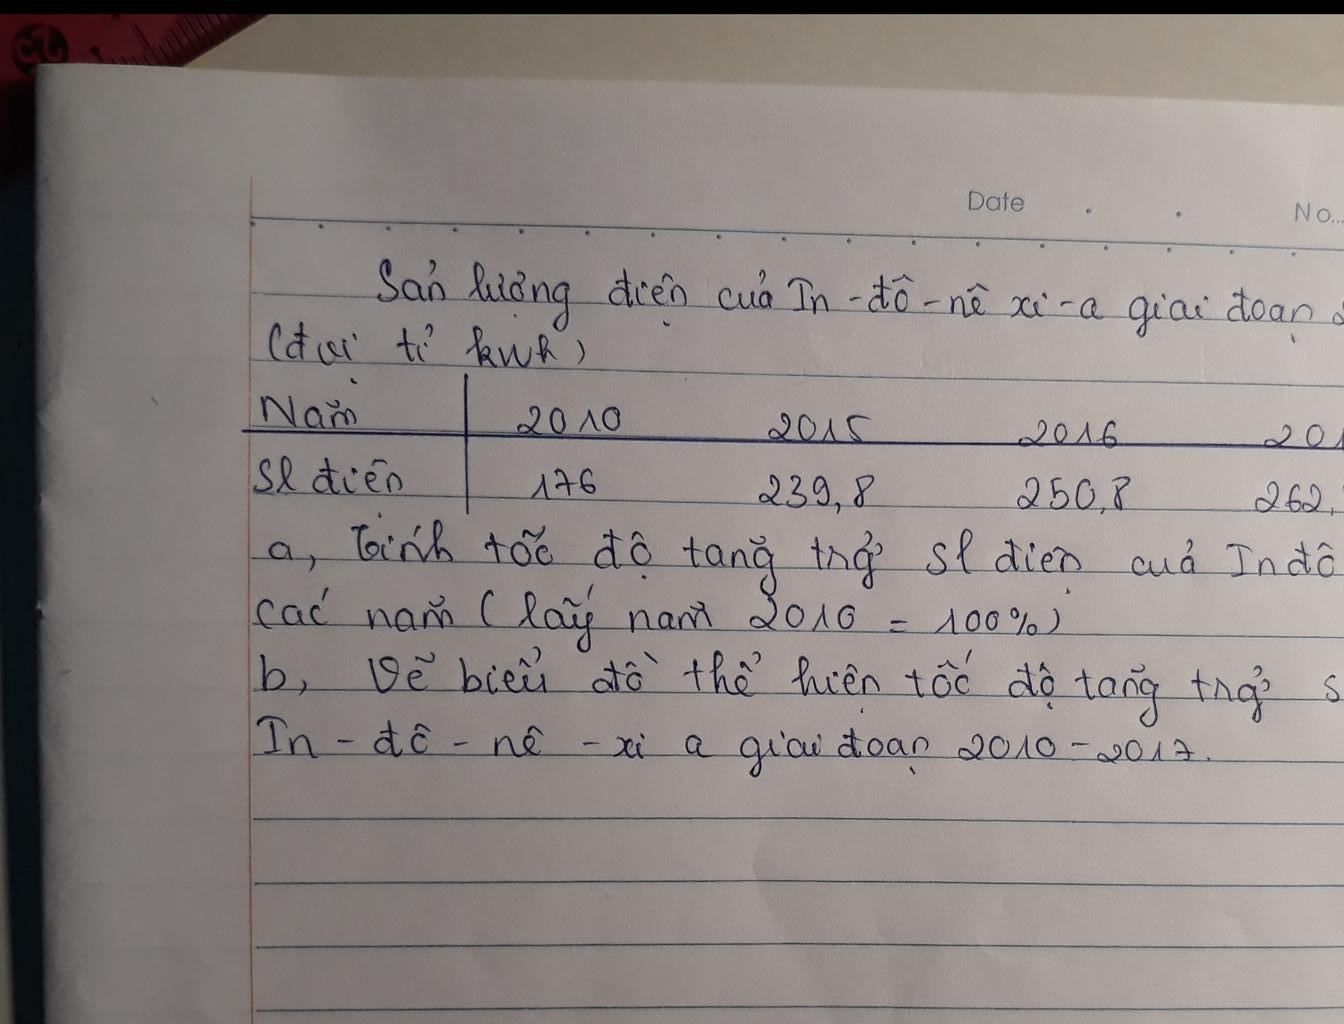 Date . . No...
Sản lượng điện của In-đô-nê xi-a giai đoạn
(đvị tỉ kwh)
Năm 2010 2015 2016 201
Sl điện 176 239,8 250,8 262,
a, Tính tốc độ tăng trg̉ sl điện của Inđô
các năm (lấy năm 2010 = 100%)
b, Vẽ biểu đồ thể hiện tốc độ tăng trg̉ s
In-đô-nê-xi a giai đoạn 2010-2017.